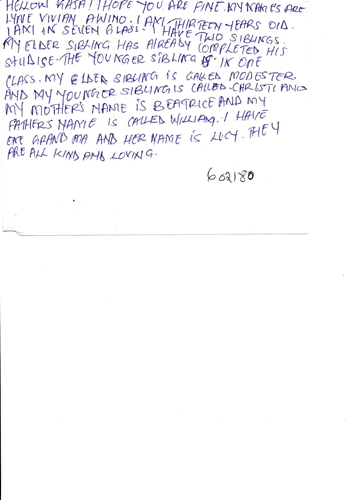 HELLOW KAJA! I HOPE YOU ARE FINE. MY NAMES ARE
LYNE VIVIAN AWINO. I AM THIRTEEN YEARS OLD.
I AM IN SEVEN GLASS. I HAVE TWO SIBLINGS.
MY ELDER SIBLING HAS ALREADY COMPLETED HIS
STUDISE. THE YOUNGER SIBLING IS IN ONE
CLASS. MY ELDER SIBLING IS CALLED MODESTER
AND MY YOUNGER SIBLING IS CALLED. CHRISTIANO
MY MOTHER'S NAME IS BEATRICE AND MY
FATHERS NAME IS CALLED WILLIAM. I HAVE
ONE GRAND MA AND HER NAME IS LUCY. THEY
ARE ALL KIND AND LOVING.
602180